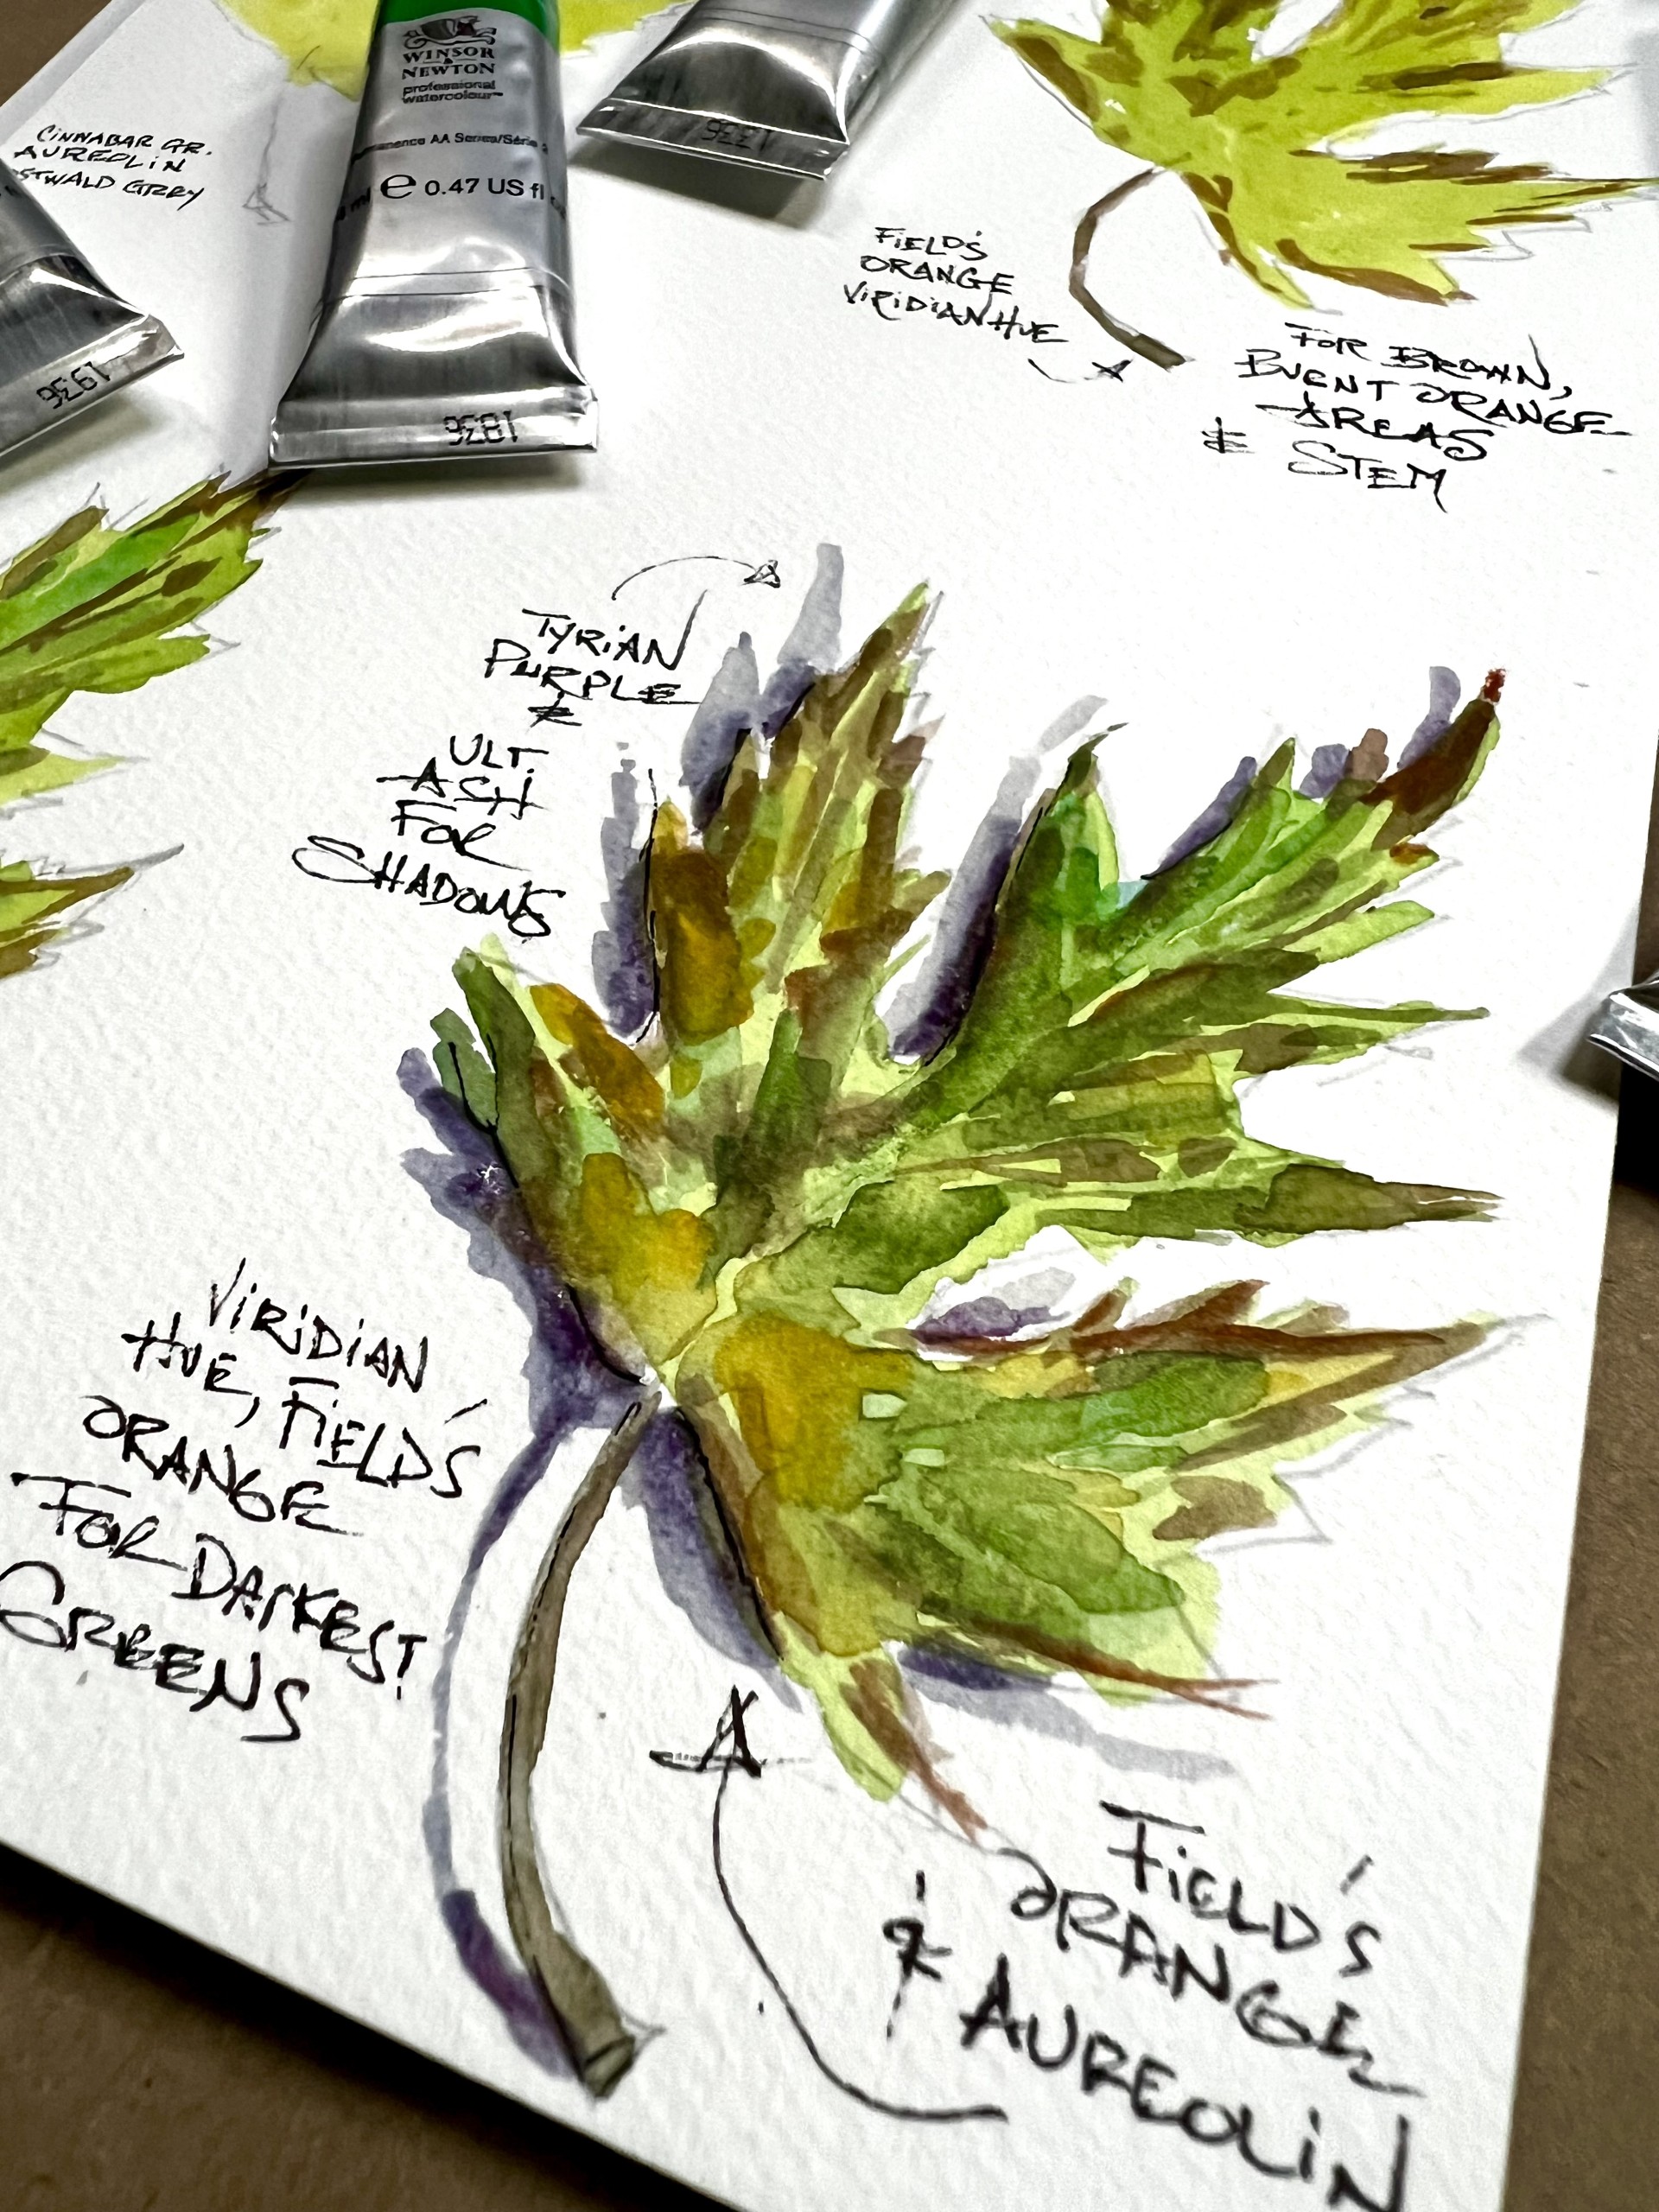 WINSOR
&
NEWTON
professional
watercolour™
AA Series/Série
e 0.47 US fl
1336
1936
1836
CINNABAR GR.
AUREOLIN
GREY
FIELD'S
ORANGE
VIRIDIAN HUE
FOR BROWN,
BURNT ORANGE
AREAS
& STEM
TYRIAN
PURPLE
&
ULT.
ASH
FOR
SHADOWS
VIRIDIAN
HUE, FIELD'S
ORANGE
FOR DARKEST
GREENS
FIELD'S
ORANGE
& AUREOLIN